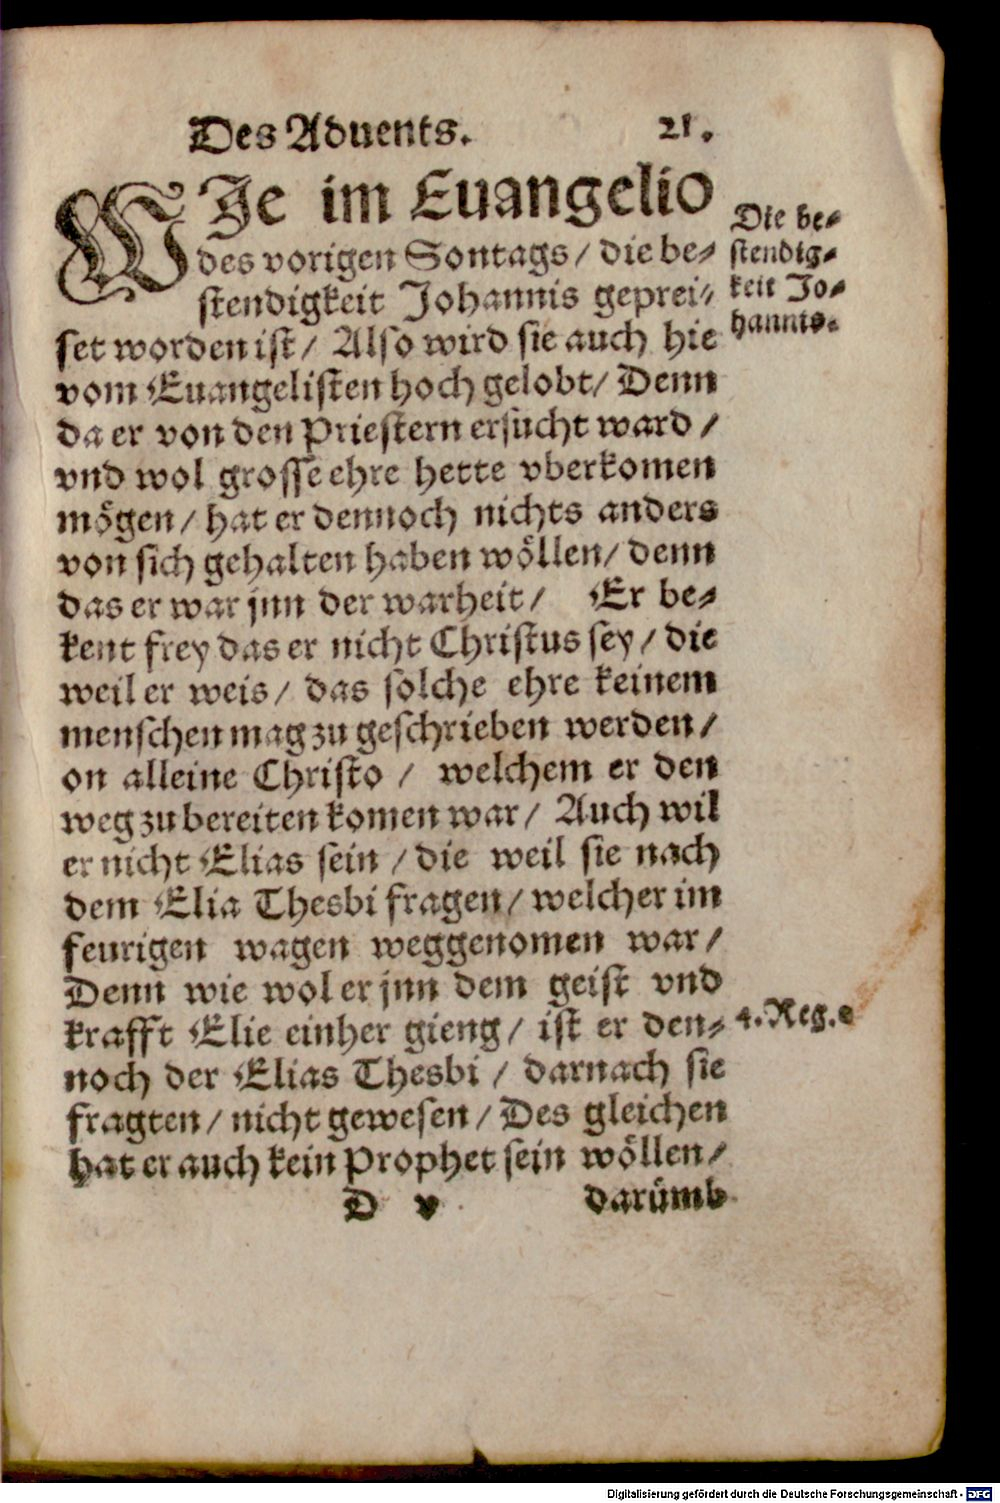 Des Aduents. 21.
WIe im Euangelio
des vorigen Sontags / die be⸗
stendigkeit Johannis geprei⸗
set worden ist / Also wird sie auch hie
vom Euangelisten hoch gelobt / Denn
da er von den Priestern ersucht ward /
vnd wol grosse ehre hette vberkomen
mögen / hat er dennoch nichts anders
von sich gehalten haben wöllen / denn
das er war jnn der warheit / Er be⸗
kent frey das er nicht Christus sey / die
weil er weis / das solche ehre keinem
menschen mag zu geschrieben werden /
on alleine Christo / welchem er den
weg zu bereiten komen war / Auch wil
er nicht Elias sein / die weil sie nach
dem Elia Thesbi fragen / welcher im
feurigen wagen weggenomen war /
Denn wie wol er jnn dem geist vnd
krafft Elie einher gieng / ist er den⸗
noch der Elias Thesbi / darnach sie
fragten / nicht gewesen / Des gleichen
hat er auch kein Prophet sein wöllen /
D v darümb
Die be⸗
stendig⸗
keit Jo⸗
hannis.
4. Reg.
Digitalisierung gefördert durch die Deutsche Forschungsgemeinschaft - DFG